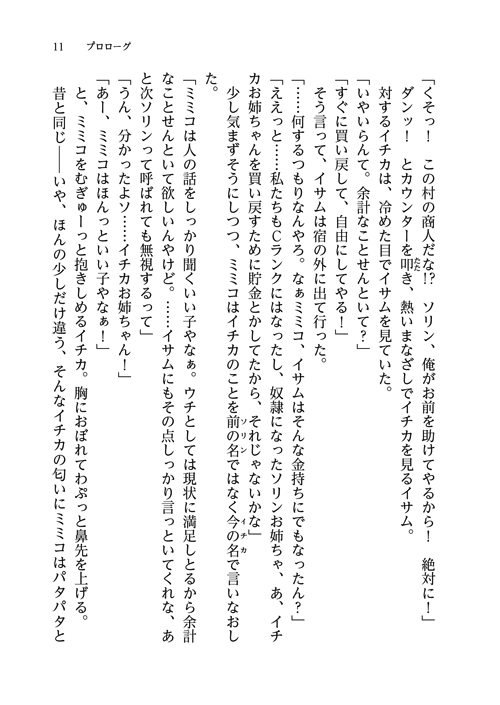 11　プロローグ
「くそっ！　この村の商人だな!?　ソリン、俺がお前を助けてやるから！　絶対に！」
　ダンッ！　とカウンターを叩き、熱いまなざしでイチカを見るイサム。
　対するイチカは、冷めた目でイサムを見ていた。
「いやいらんて。余計なことせんといて？」
「すぐに買い戻して、自由にしてやる！」
　そう言って、イサムは宿の外に出て行った。
「……何するつもりなんやろ。なぁミミコ、イサムはそんな金持ちにでもなったん？」
「ええっと……私たちもCランクにはなったし、奴隷になったソリンお姉ちゃ、あ、イチ
カお姉ちゃんを買い戻すために貯金とかしてたから、それじゃないかな」
　少し気まずそうにしつつ、ミミコはイチカのことを前の名ではなく今の名で言いなおし
た。
「ミミコは人の話をしっかり聞くいい子やなぁ。ウチとしては現状に満足しとるから余計
なことせんといて欲しいんやけど。……イサムにもその点しっかり言っといてくれな、あ
と次ソリンって呼ばれても無視するって」
「うん、分かったよソ……イチカお姉ちゃん！」
「あー、ミミコはほんっといい子やなぁ！」
　と、ミミコをむぎゅーっと抱きしめるイチカ。胸におぼれてわぷっと鼻先を上げる。
　昔と同じ――いや、ほんの少しだけ違う、そんなイチカの匂いにミミコはパタパタと